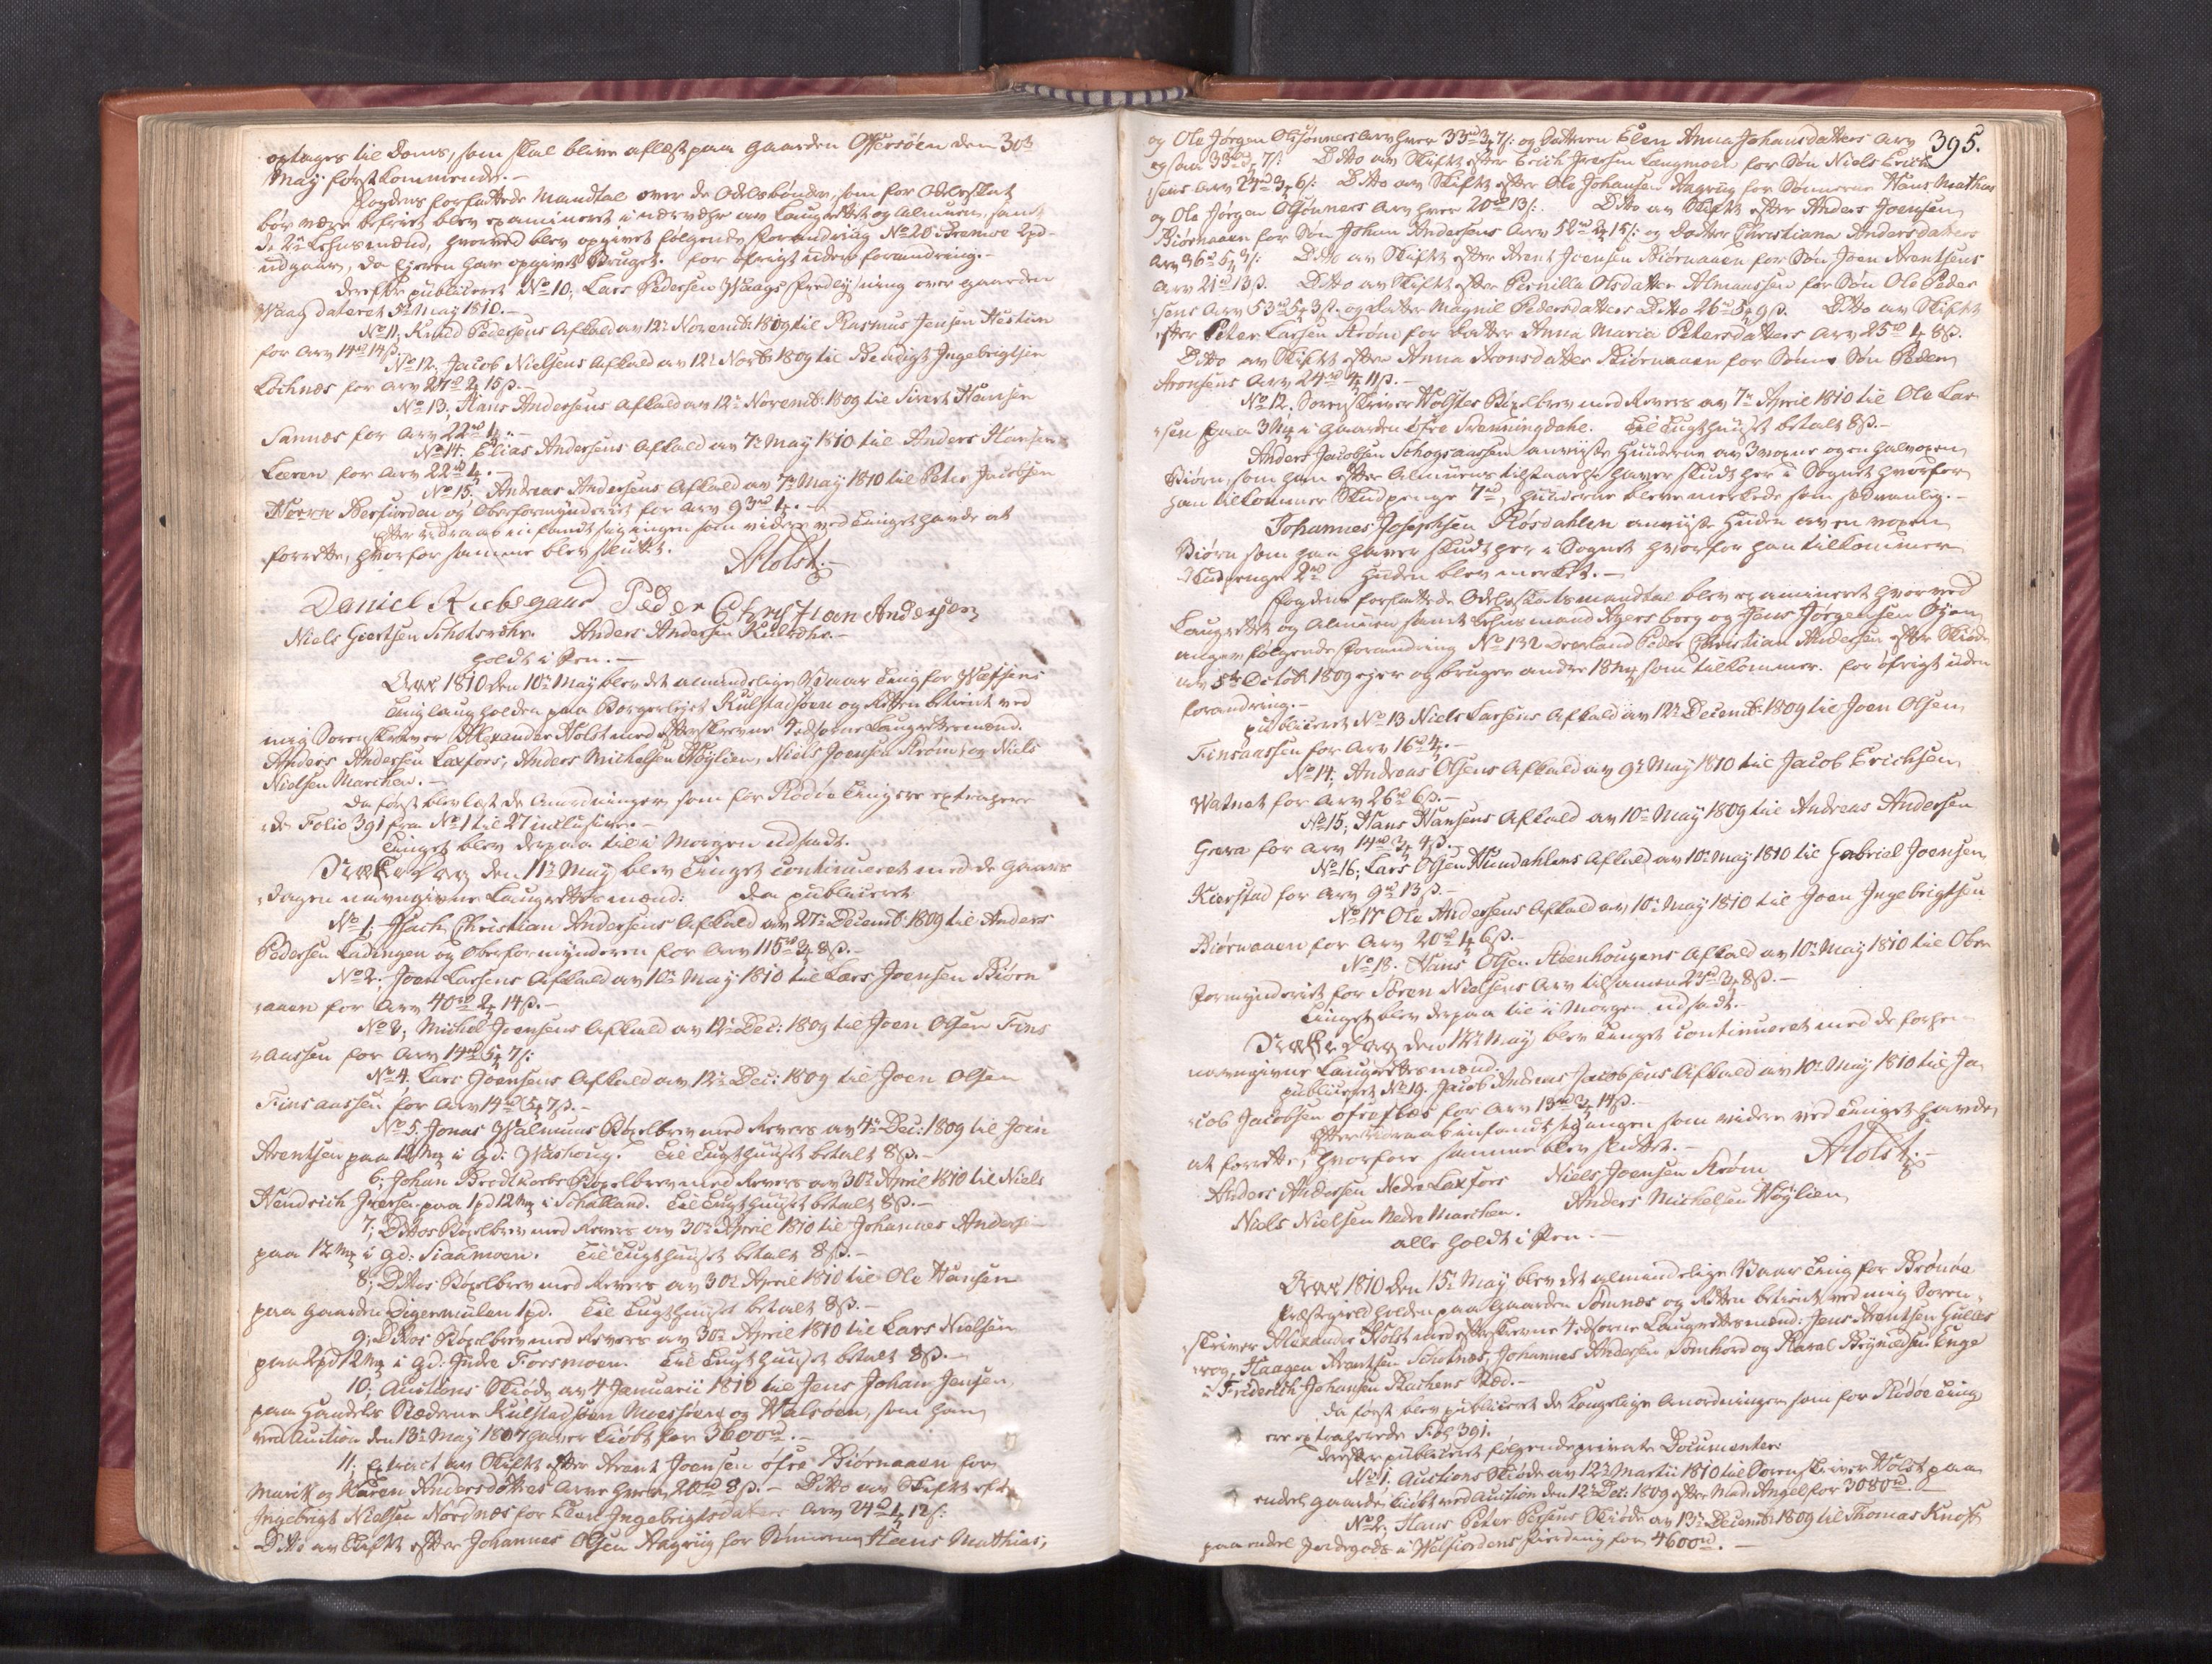 optages til Doms, som skal blive aflæst paa Gaarden Offersøen den 30te
May førstkommende.-
Fogdens forfattede Mandtal over de Odelsbønder, som for Odelsskat
bør være befriet blev examineret i nærværelse av Laugrettet og Almuen, samt
de 2de Lehnsmænd, hvorved blev opgivet følgende forandring No 20 Bremoe 2pd
udgaaer, da Ejeren har opgivet Bruget. for øvrigt uden forandring.-
Derefter publiceret No 10, Lars Pedersen Waags Fredlysning over Gaarden
Waag dateret May 1810.-
No 11, Knud Pedersens Afkald av 12te Novemb: 1809 til Rasmus Jensen Hestun
for Arv 14rd 14ß.
No 12, Jacob Nielsens Afkald av 12te Novb: 1809 til Bendigt Ingebrigtsen
Lochnæs for Arv 27rd 2 15ß.-
No 13, Hans Andersens Afkald av 12te Novemb: 1809 til Sivert Hansen
Sannæs for Arv 22rd 1.-
No 14. Elias Andersens Afkald av 7de May 1810 til Anders Hansen
Leeren for Arv 22rd 4.-
No 15. Andreas Andersens Afkald av 7de May 1810 til Peter Jacobsen
og Oberformynderiet for Arv 93rd 1.-
Efter udraab infandt sig ingen som videre ved Tinget havde at
forrette, hvorfor samme blev sluttet.
AHolst.-
Daniel Peder Christian Andersen
Niels Giertsen Anders Andersen
holdt i Pen.-
Aar 1810 den 10de May blev det almindelige Vaar Ting for Wefsens
Tinglaug holden paa Borgerlejet Kulstadsøen og Retten betient ved
mig Sorenskriver Alexander Holst med efterskrevne 4 edsorne Laugrettesmænd.
Anders Andersen Laxfors, Anders Michelsen Høylien, Niels Joensen Strøm, og Niels
Nielsen Marchen.-
Da først blev læst de Anordninger som for Rødøe Ting ere extraherede
Folio 391 fra No 1 til 27 inclusive.-
Tinget blev derpaa til i Morgen udsadt.
Næste Dag den 11te May blev Tinget continueret med de Gaars
Dagen navngivne Laugrettesmænd: Da publiceret
No 1, Isach Christian Andersens Afkald av 27de Decemb: 1809 til Anders
Pedersen Ladingen og Oberformynderen for Arv 115rd 3 8ß.-
No 2. Joen Larsens Afkald av 10de May 1810 til Lars Joensen Biørn
aaen for Arv 40rd 2 14ß.-
No 3, Michel Joensens Afkald av 12te Dec: 1809 til Joen Olsen Fins
aassen for Arv 14rd 5 7ß:
No 4. Lars Joensens Afkald av 12te Dec: 1809 til Joen Olsen
Finsaassen for Arv 14rd 5 7ß.-
No 5. Jonas Walnums Bøxelbrev med Revers av 4de Dec: 1809 til Joen
Arentsen paa i Gd: Til Tugthuuset betalt 8ß.-
6, Johan Brodtkorbs Bøxelbrev med Revers av 30te April 1810 til Niels
Hendrich Iversen paa 1pd 12 i Til Tugthuuset betalt 8ß.-
7, Dittos Bøxelbrev med Revers av 30te April 1810 til Johannes Andersen
paa 12 i Gd: Siaamoen. Til Tugthuuset betalt 8ß.-
8, Dittos Bøxelbrev med Revers av 30te April 1810 til Ole Hansen
paa Gaarden Digermulen 1pd. Til Tugthuuset betalt 8ß.-
9, Dittos Bøxelbrev med Revers av 30te April 1810 til Lars Nielsen
paa 2pd 12 i Gd: Indre Forsmoen. Til Tugthuuset betalt 8ß.-
10, Auctions Skiøde av 4 Januarii 1810 til Jens Johan Jensen
paa Handels Stæderne Kulstadsøen Moessøen og Walsøen, som han
ved Auction den 13de May 1807 haver kiøbt for 3600rd.-
11, Extract av Skifte efter Arent Joensen øfre Biørnaaen for
Marit og Karen Andersdøttres Arve hver 20rd 8ß.- Ditto av Skifte efter
Ingebrigt Nielsen Nordnæs for Ingebrigtsdatters Arv 24rd 1 12ß:
Ditto av Skifte efter Johannes Olsen Aagrüg for Sønnerne Hans Mathias,
395.
og Ole Jørgen Olsønners Arv hver 33rd 3 7ß: og Datteren Elen Anna Johansdatters Arv
ogsaa 33rd 3 7ß: Ditto av Skifte efter Erich Iversen Langmoen for Søn Niels Erich
sens Arv 24rd 3 6ß: Ditto av Skifte efter Ole Johansen Aagrüg for Sønnerne Hans Mathias
og Ole Jørgen Olsønners Arv hver 20rd 13ß: Ditto av Skifte efter Anders Joensen
Biørnaaen for Søn Johan Andersens Arv 52rd 2 15ß: og Datter Christiana Andersdatters
Arv 36rd 5 3ß: Ditto av Skifte efter Arent Joensen Biørnaaen for Søn Joen Arentsens
Arv 21rd 13ß. Ditto av Skifte efter Pernilla Olsdatter Almaassen for Søn Ole Peder
sens Arv 53rd 5 3ß. og Datter Magnil Pedersdatters Ditto 26rd 5 9ß. Ditto av Skifte
efter Peter Larsen Strøm for Datter Anna Maria Petersdatters Arv 25rd 1 8ß.
Ditto av Skifte efter Anna Aronsdatter Biørnaaen for Sønne Søn Peder
Aronsens Arv 24rd 4 11ß.-
No 12. Sorenskriver Holstes Bøxelbrev med Revers av 7de April 1810 til Ole Lar
sen paa 3 i Gaarden Øfre Svenningdahl. Til Tugthuuset betalt 8ß.-
Anders Jacobsen Schogsaassen anviiste Huuderne av 3 voxne og en halvoxen
Biørn, som han efter Almuens tilstaaelse haver skudt her i Sognet hvorfor
han tilkommer Skudpenge 7rd, Huuderne bleve merkede som sædvanlig.-
Johannes Josephsen Røsdahlen anviiste Huden av en voxen
Biørn som han haver skudt her i Sognet hvorfor han tilkommer
Skudpenge 2rd Huden blev merket.-
Fogdens forfattede Odelsskatsmandtal blev examineret hvorved
Laugrettet og Almuen samt Lehnsmand Agersborg og Jens Jørgensen Øyen
angav følgende forandring No 132 Peder Christian Andersen efter Skiøde
av 5te Octob: 1809 ejer og bruger andre 18 som tilkommer. for øfrigt uden
forandring.-
publiceret No 13 Niels Larsens Afkald av 12te Decemb: 1809 til Joen Olsen
Finsaassen for Arv 16rd 4.-
No 14, Andreas Olsens Afkald av 9de May 1810 til Jacob Erichsen
Watnet for Arv 26rd 6ß.-
No 15, Hans Hansens Afkald av 10de May 1809 til Andreas Andersen
for Arv 14rd 3 4ß.-
No 16, Lars Olsen Hundahlens Afkald av 10de May 1810 til Gabriel Joensen
Kierstad for Arv 9rd 13ß.-
No 17 Ole Andersens Afkald av 10de May 1810 til Joen Ingebrigtsen
Biørnaaen for Arv 20rd 4 6ß.
No 18. Hans Olsen Steenhougens Afkald av 10de May 1810 til Ober
formynderiet for Søren Nielsens Arv tilsamen 23rd 3 8ß.-
Tinget blev derpaa til i Morgen udsadt.-
Næste Dag den 12te May blev Tinget continueret med de forhen
navngivne Laugrettesmænd.
publiceret No 19. Jacob Andreas Jacobsens Afkald av 10de May 1810 til Ja
cob Jacobsen for Arv 13rd 2 14ß.-
Efter udraab infandt sig ingen som videre ved Tinget havde
at forrette, hvorfore samme blev sluttet.-
AHolst.-
Anders Andersen Nedre Laxfors Niels Joensen Strøm
Niels Nielsen Nedre Marchen. Anders Michelsen Høylien
alle holdt i Pen.-
Aar 1810 den 15de May blev det almindelige Vaar Ting for Brønøe
Præstegield holden paa Gaarden Sømnæs og Retten betient ved mig Soren
skriver Alexander Holst med efterskrevne 4 edsorne Laugrettesmænd: Jens Arentsen
Haagen Arentsen Johannes Andersen Sømhord og
i Friderich Johansen Stæd.-
Da først blev publiceret de Kongelige Anordninger som for Rødøe Ting
ere extraherede Fol: 391.
Derefter publiceret følgende private Documenter
No 1. Auctions Skiøde av 12te Martii 1810 til Sorenskriver Holst paa
endel Gaarde kiøbt ved Auction den 12te Dec: 1809 efter Mad: Angel for 3080rd.-
No 2. Hans Peter Skiøde av 13de Decemb: 1809 til Thomas Knoff
paa endel Jordegods i Welfiordens fierding for 4600rd.-